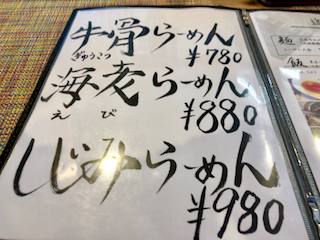 牛骨らーめん
ぎゅうこつ
¥780
海老らーめん
えび
¥880
しじみらーめん
¥980
麺
飯